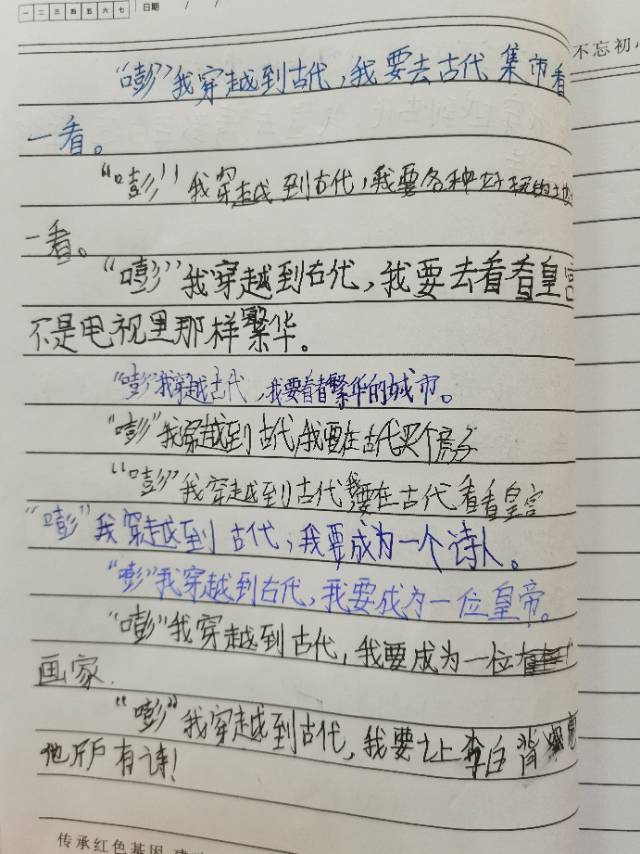 一 二 三 四 五 六 七 日期 / /
不忘初心
“嘭”我穿越到古代，我要去古代集市看
一看。
“嘭”我穿越到古代，我要各种好玩的
一看。
“嘭”我穿越到古代，我要去看看皇宫
不是电视里那样繁华。
“嘭”我穿越古代，我要看看繁华的城市。
“嘭”我穿越到古代，我要在古代买个房子
“嘭”我穿越到古代我要在古代看看皇宫
“嘭”我穿越到古代，我要成为一个诗人。
“嘭”我穿越到古代，我要成为一位皇帝。
“嘭”我穿越到古代，我要成为一位
画家.
“嘭”我穿越到古代，我要让李白背
他所有诗！
传承红色基因